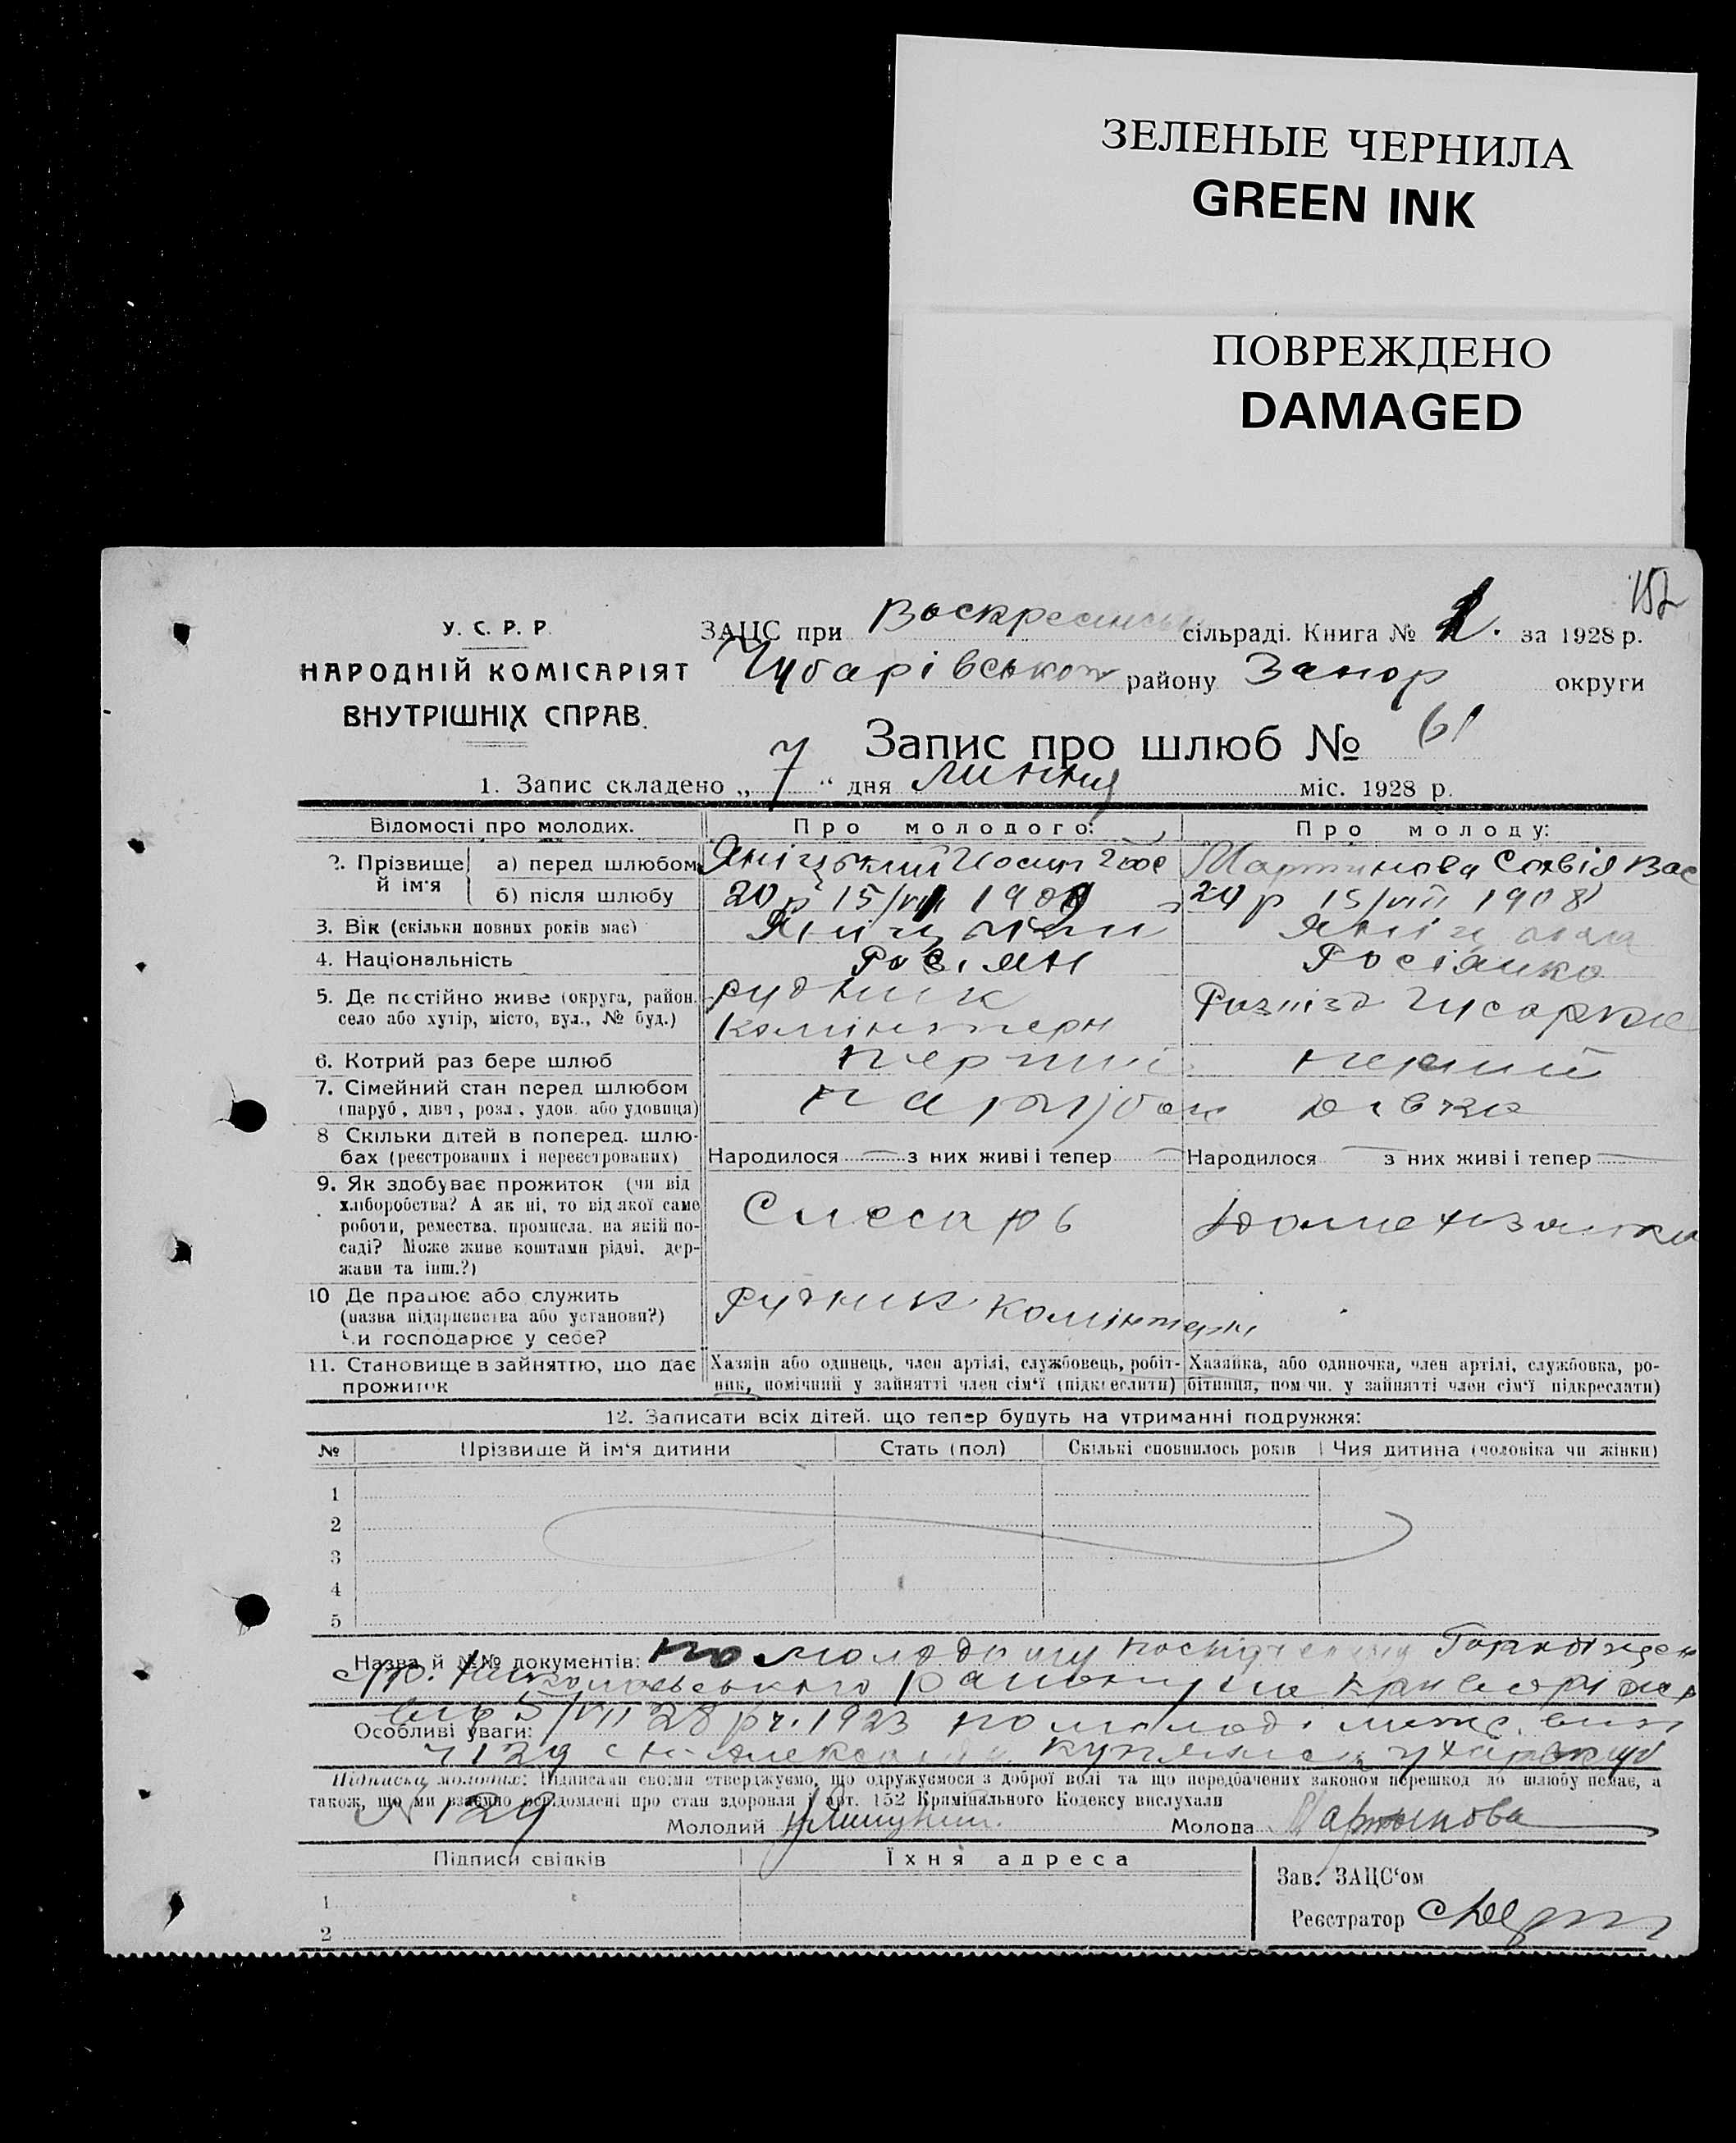 ЗЕЛЕНЫЕ ЧЕРНИЛА
GREEN INK
ПОВРЕЖДЕНО
DAMAGED
152
У. С. Р. Р.
НАРОДНІЙ КОМІСАРІЯТ
ВНУТРІШНІХ СПРАВ.
ЗАЦС при Воскресенськ сільраді. Книга № 1. за 1928 р.
Чубарівського району Запор округи
Запис про шлюб № 61
1. Запис складено „ 7 “ дня липня міс. 1928 р.
Відомості про молодих. Про молодого: Про молоду:
2. Прізвище й ім'я а) перед шлюбом Яніцький Иосип Мартинова Софія Вас
б) після шлюбу 20 р 15/VIII 1908 20 р 15/VIII 1908
3. Вік (скільки повних років має)
4. Національність Росіян Росіянка
5. Де постійно живе (округа, район, село або хутір, місто, вул., № буд.) рудник Комінтерн Розпізд Гусарка
6. Котрий раз бере шлюб перший перший
7. Сімейний стан перед шлюбом (паруб., дівч., розл., удов. або удовиця) парубок дівка
8 Скільки дітей в поперед. шлюбах (реєстрованих і нереєстрованих) Народилося — з них живі і тепер — Народилося — з них живі і тепер —
9. Як здобуває прожиток (чи від хліборобства? А як ні, то від якої саме роботи, ремества, промисла, на якій посаді? Може живе коштами рідні, держави та інш.?) Слесарь Домохозяйка
10 Де працює або служить (назва підприємства або установи?) Чи господарює у себе? Рудник Комінтерн
11. Становище в зайняттю, що дає прожиток Хазяїн або одинець, член артілі, службовець, робітник, помічний у зайнятті член сім'ї (підкреслити) Хазяйка, або одиночка, член артілі, службовка, робітниця, помічн. у зайнятті член сім'ї підкреслати)
12. Записати всіх дітей, що тепер будуть на утриманні подружжя:
№ Прізвище й ім'я дитини Стать (пол) Скількі сповнилось років Чия дитина (чоловіка чи жінки)
1
2
3
4
5
Назва й №№ документів: по молодому
району
Особливі уваги: від 5/VII 28 р. 1923 по молоді
Підписка молодих: Підписами своїми стверджуємо, що одружуємося з доброї волі та що передбачених законом перешкод до шлюбу немає, а
також, що ми взаємно освідомлені про стан здоровля і арт. 152 Крамінального Кодексу вислухали
№ 129
Молодий Молода Мартынова
Підписи свідків Їхня адреса
Зав. ЗАЦС'ом
1
Реєстратор
2